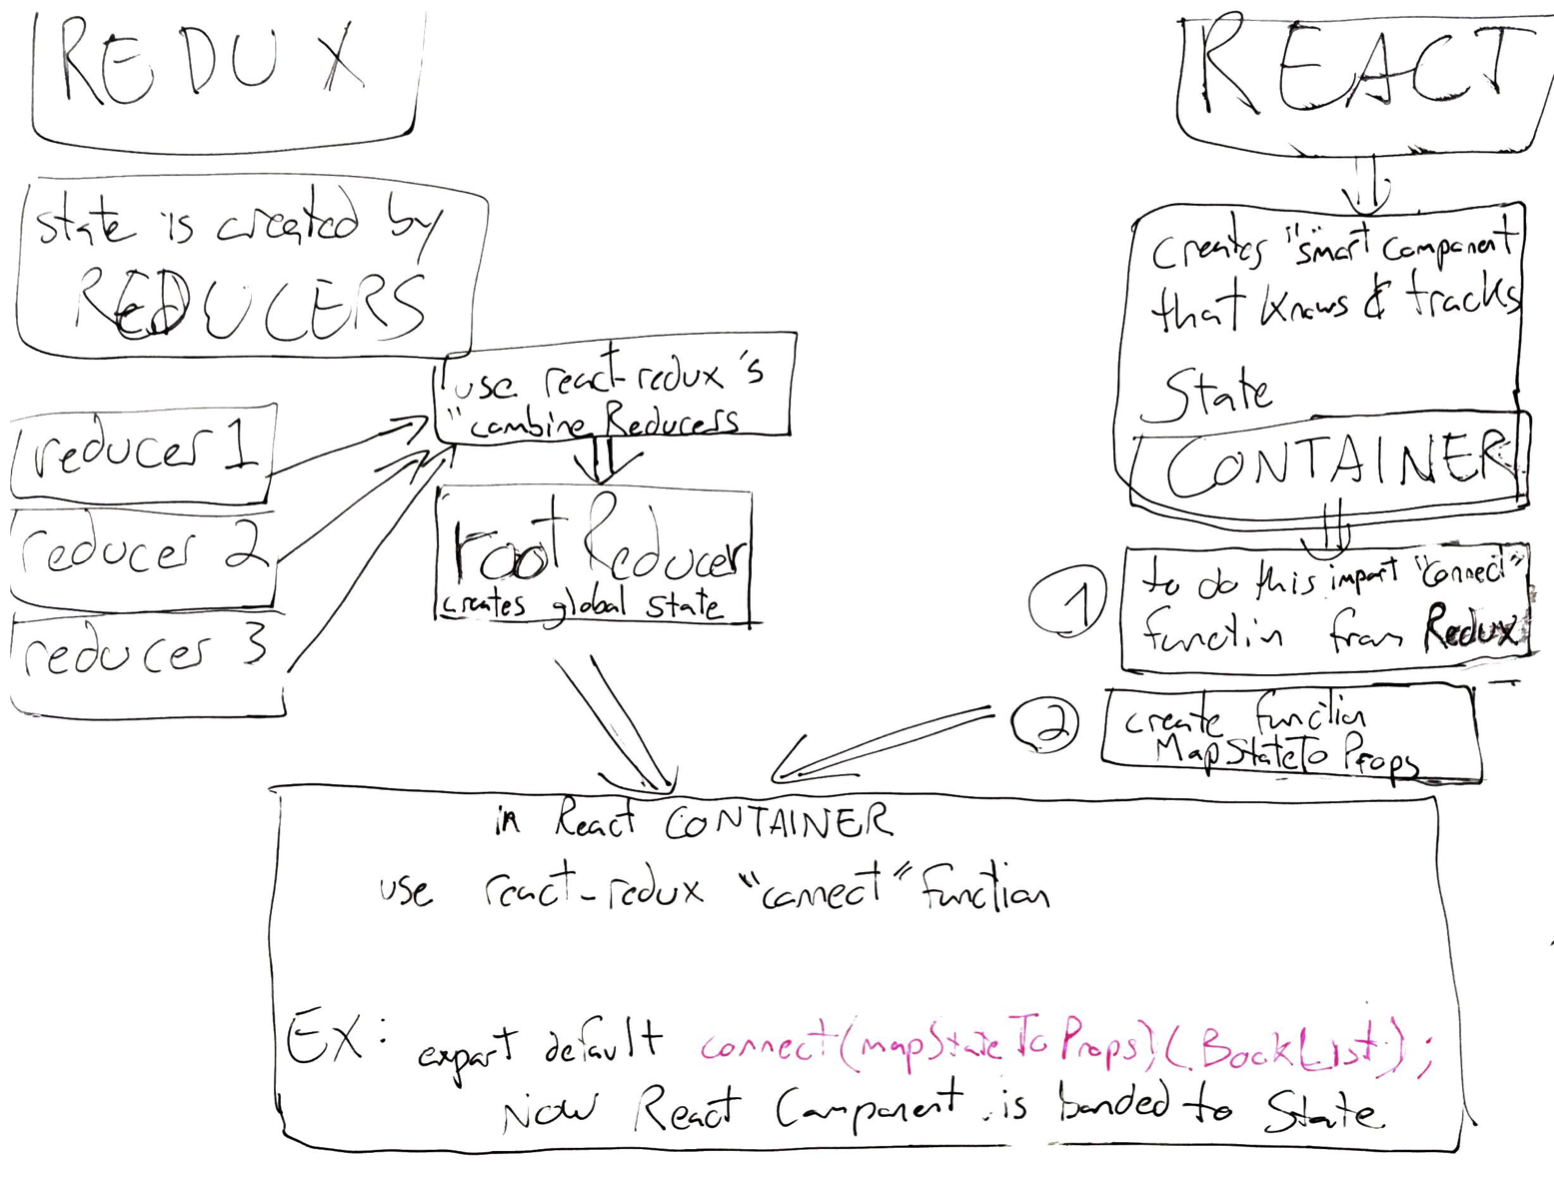 REDUX
state is created by
REDUCERS
reducer 1
reducer 2
reducer 3
use react-redux's
"combine Reducers
root Reducer
creates global state
REACT
creates "smart" component
that knows & tracks
State
CONTAINER
1
to do this import "connect"
function from Redux
2
create function
MapStateTo Props
in React CONTAINER
use react-redux "connect" function
EX: export default connect(mapStateToProps)(BookList);
Now React Component is bonded to State